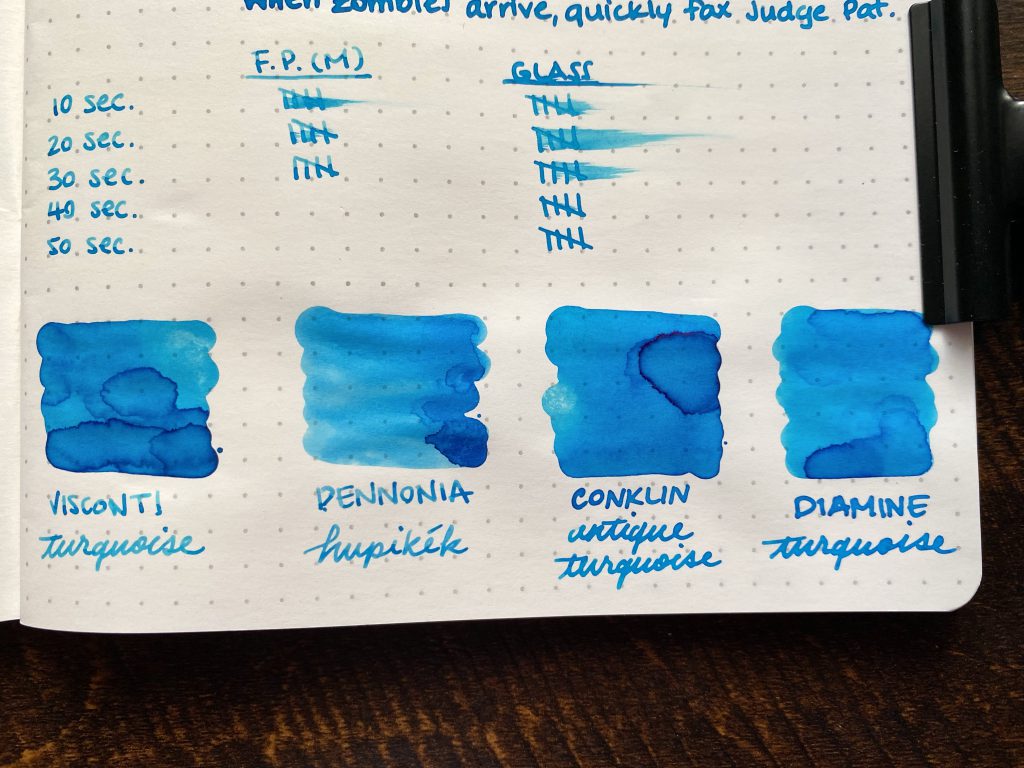 When zombies arrive, quickly fax Judge Pat.
F.P. (M) GLASS
10 sec.
20 sec.
30 sec.
40 sec.
50 sec.
VISCONTI
turquoise
PENNONIA
hupikék
CONKLIN
antique
turquoise
DIAMINE
turquoise